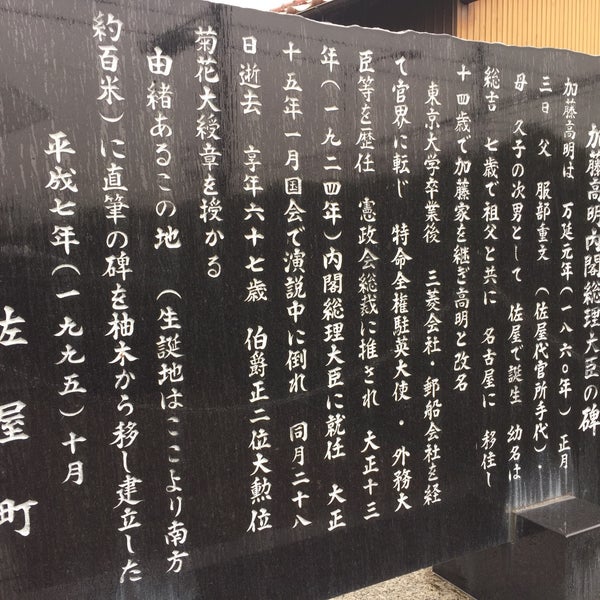 加藤高明内閣総理大臣の碑
加藤高明は 万延元年(一八六〇年)正月
三日 父 服部重文(佐屋代官所手代)・
母 久子の次男として 佐屋で誕生 幼名は
総吉 七歳で祖父と共に 名古屋に 移住し
十四歳で加藤家を継ぎ高明と改名
東京大学卒業後 三菱会社・郵船会社を経
て官界に転じ 特命全権駐英大使・外務大
臣等を歴任 憲政会総裁に推され 大正十三
年(一九二四年)内閣総理大臣に就任 大正
十五年一月国会で演説中に倒れ 同月二十八
日逝去 享年六十七歳 伯爵正二位大勲位
菊花大綬章を授かる
由緒あるこの地 (生誕地はここより南方
約百米)に直筆の碑を柚木から移し建立した
平成七年(一九九五)十月
佐屋町